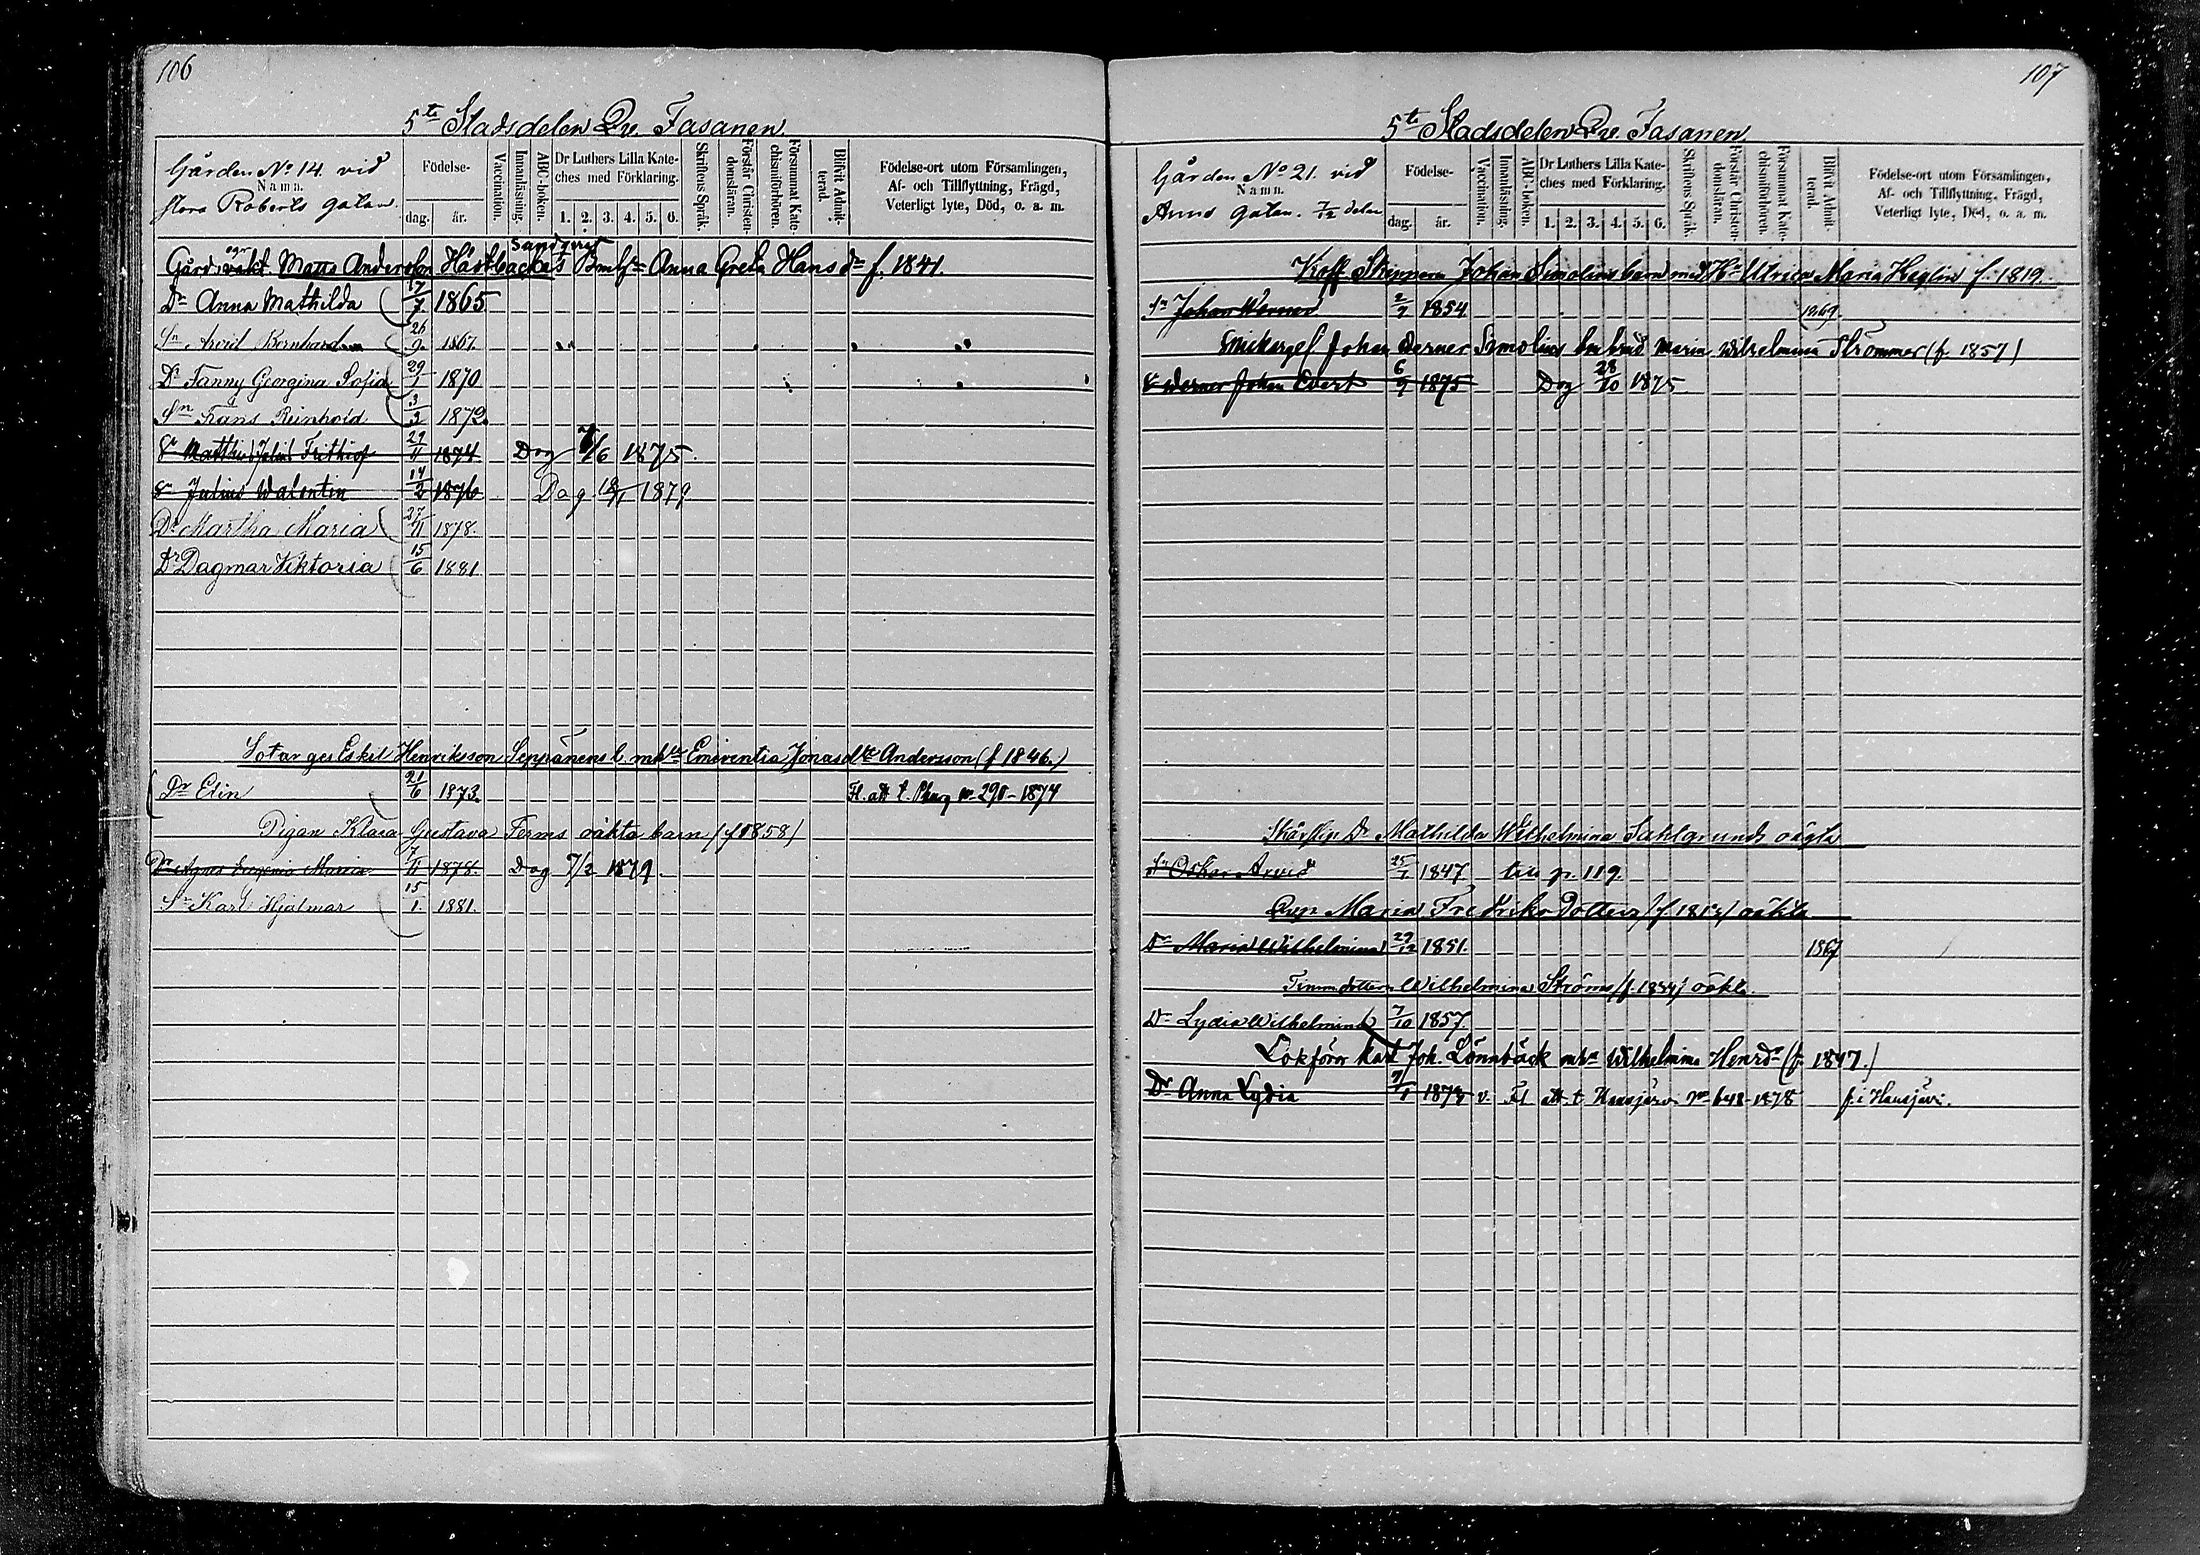 106
5te Stadsdelen Qv. Fasanen
Gården No 14. vid
Namn.
Stora Roberts gatan.
Födelse-
dag. år.
Vaccination.
Innanläsning.
ABC-boken.
Dr Luthers Lilla Kate-
ches med Förklaring.
1. 2. 3. 4. 5. 6.
Skriftens Språk.
Förstår Christen-
domsläran.
Försummat Kate-
chismiförhören.
Blifvit Admit-
terad.
Födelse-ort utom Församlingen,
Af- och Tillflyttning, Frägd,
Veterligt lyte, Död, o. a. m.
Sandqvist
Gårds Matts Anderson Hästbackas Anna Greta Hansdr f. 1841.
Dr Anna Mathilda 17/7 1865
Sn Arvid Bernhard 26/9 1867
Dr Fanny Georgina Sofia 29/1 1870
Sn Frans Reinhold 3/3 1872
Sn Matthias Julius Frithiof 29/4 1874 Dog 7/6 1875.
Sn Julius Walentin 14/2 1876 Dog 1879
Dr Martha Maria 27/11 1878.
Dr Dagmar Viktoria 15/6 1881
Sotarges Eskil Henriksson Seppänens b. mhu Emerentia Jonasdtr Andersson (f 1846.)
Dr Elin 21/6 1873. Fl. att t. no 290-1874
Pigan Klara Gustava Ferms oäkta barn (f 1858)
Dr Agnes Eugenia Maria 7/11 1878. Dog 7/2 1879.
Sn Karl Hjalmar 15/1. 1881.
107
5te Stadsdelen Qv. Fasanen
Gården No 21. vid
Namn.
Anne gatan. 7/12 delar
Födelse-
dag. år.
Vaccination.
Innanläsning.
ABC-boken.
Dr Luthers Lilla Kate-
ches med Förklaring.
1. 2. 3. 4. 5. 6.
Skriftens Språk.
Förstår Christen-
domsläran.
Försummat Kate-
chismiförhören.
Blifvit Admit-
terad.
Födelse-ort utom Församlingen,
Af- och Tillflyttning, Frägd,
Veterligt lyte, Död, o. a. m.
Koff. Skepparen Johan Simolins barn med Hu Ulrica Maria Heglin f. 1819.
Sn Johan Werner 2/9 1854 1869
Snickarges Johan Verner Simolins bn Maria Wilhelmina Strömmer (f 1857)
Sn Werner Johan Evert 6/9 1875 Dog 28/10 1875
Mathilda Wilhelmina Sahlgrunds oägta
Sn Oskar Arvid 25/7 1847 till p. 119.
Maria Fredriksdotters oäkta
Dr Maria Wilhelmina 29/12 1851. 1867
Timm.dottern Wilhelmina Ströms (f. 1834) oäkta.
Dr Lydia Wilhelmina 7/10 1857.
Lokförer Karl Joh. Lönnbäck mhu Wilhelmina Henrdr (f. 1847.)
Dr Anna Lydia 9/1 v. Fl att t Hausjärvi no 648-1878 f. i Hausjärvi.